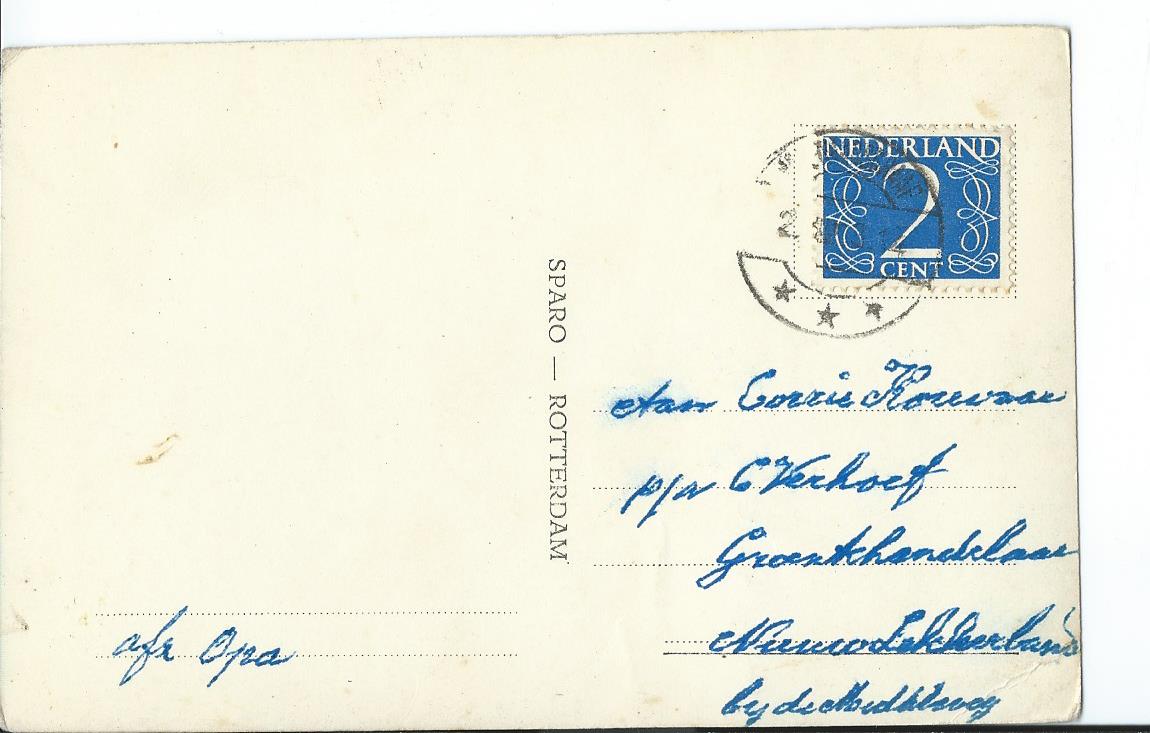 NEDERLAND
2
CENT
SPARO — ROTTERDAM
Aan Corrie Kouwaar
p/a C Verhoef
Groenthandelaar
Nieuw Lekkerland
by de Middelweg
afz Opa